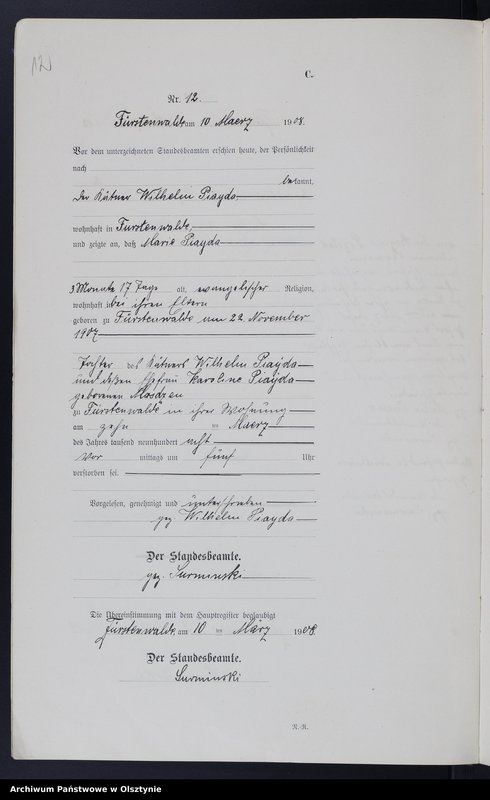 12
C.
Nr. 12.
Fürstenwalde am 10 Maerz 1908.
Vor dem unterzeichneten Standesbeamten erschien heute, der Persönlichkeit
nach
bekannt,
der Kätner Wilhelm Piayda
wohnhaft in Fürstenwalde,
und zeigte an, daß Marie Piayda
3 Monate 17 Tage alt, evangelischer Religion,
wohnhaft in bei ihren Eltern
geboren zu Fürstenwalde am 22 November
1907
Tochter des Kätners Wilhelm Piayda
und dessen Ehefrau Karoline Piayda
geborenen Mosdzen
zu Fürstenwalde in ihrer Wohnung
am zehn ten Maerz
des Jahres tausend neunhundert acht
Vor mittags um fünf Uhr
verstorben sei.
Vorgelesen, genehmigt und unterschrieben
gez Wilhelm Piayda
Der Standesbeamte.
gez. Surminski
Die Übereinstimmung mit dem Hauptregister beglaubigt
Fürstenwalde, am 10 ten März 1908.
Der Standesbeamte.
Surminski
N.-R.
Archiwum Państwowe w Olsztynie